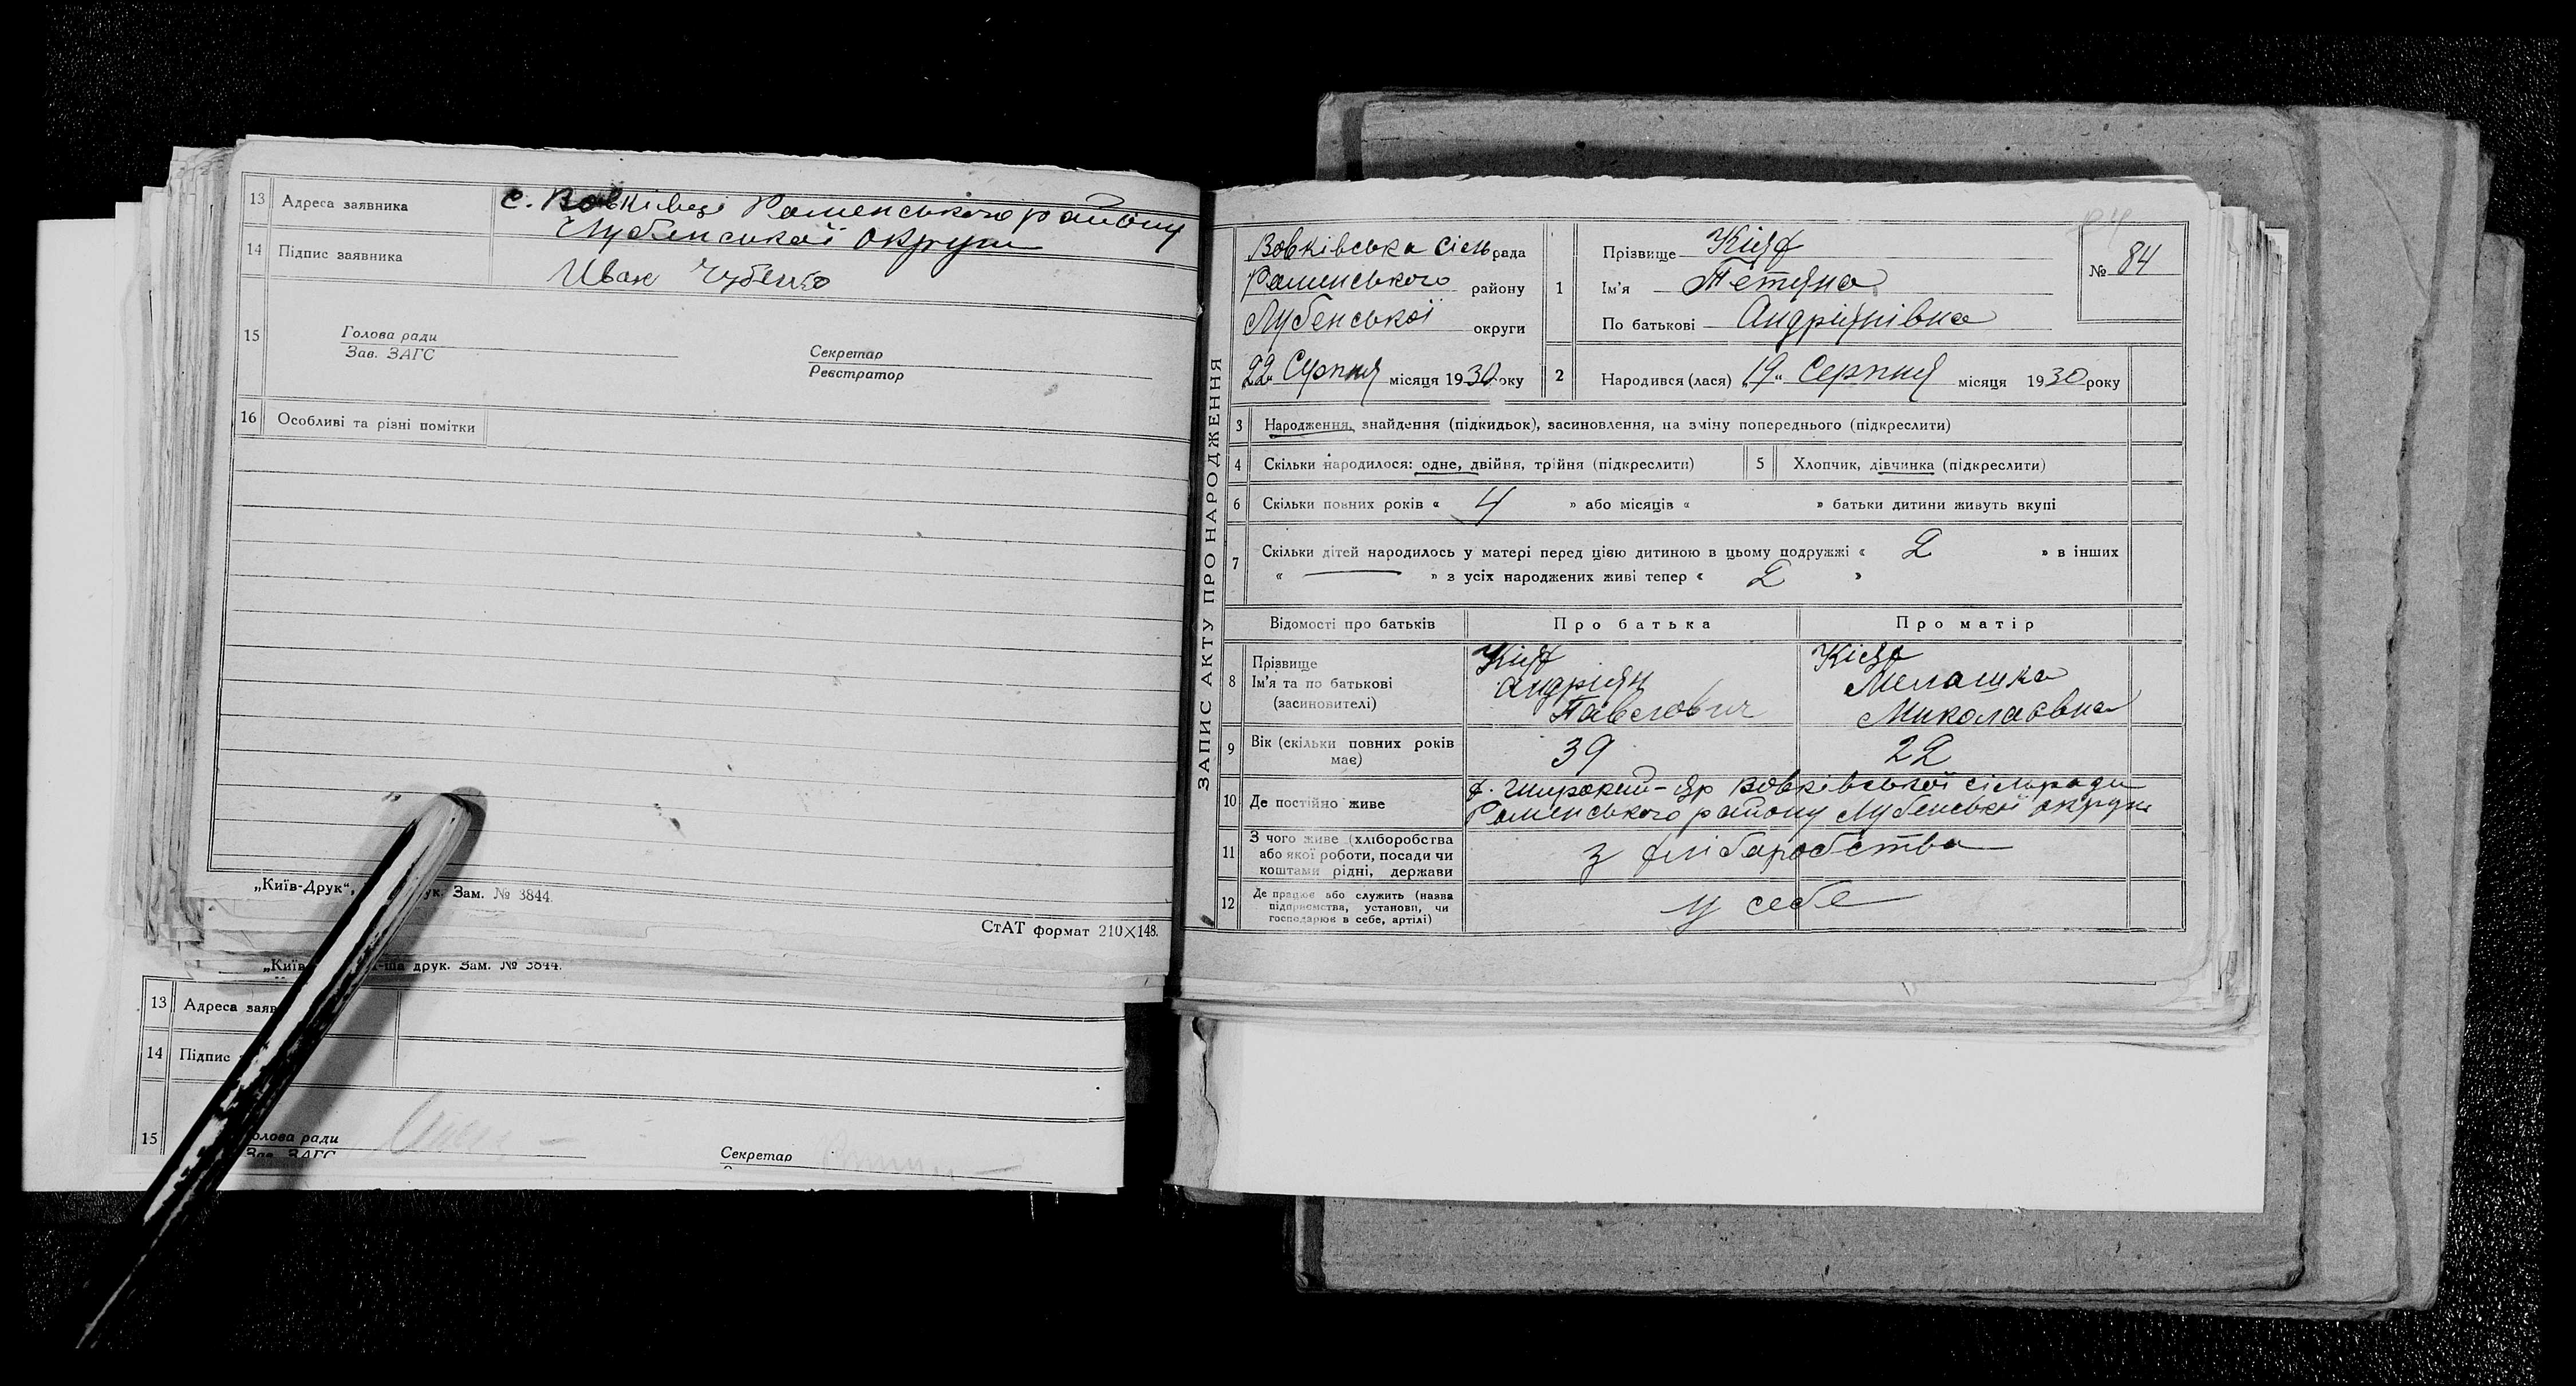 13 Адреса заявника с. Вовківці Роменського району
Лубенської округи
14 Підпис заявника
Иван Чубенко
15 Голова ради
Зав. ЗАГС
Секретар
Реєстратор
16 Особливі та різні помітки
„Київ-Друк“, ук. Зам. № 3844.
СтАТ формат 210×148.
„Київ -ша друк. Зам. № 3844.
13 Адреса заяв
14 Підпис
15 олова ради
Зав. ЗАГС
Секретар
ЗАПИС АКТУ ПРО НАРОДЖЕННЯ
Вовківська сільрада
Роменського району
Лубенської округи
22 Серпня місяця 1930 року
1 Прізвище Кіях
Ім'я Тетяна
По батькові Андріянівна
№ 84
2 Народився (лася) „19“ Серпня місяця 1930 року
3 Народження, знайдення (підкидьок), засиновлення, на зміну попереднього (підкреслити)
4 Скільки народилося: одне, двійня, трійня (підкреслити) 5 Хлопчик, дівчинка (підкреслити)
6 Скільки повних років « 4 » або місяців « » батьки дитини живуть вкупі
7 Скільки дітей народилось у матері перед цією дитиною в цьому подружжі « 2 » в інших
« — » з усіх народжених живі тепер « 2 »
Відомості про батьків Про батька Про матір
8 Прізвище
Ім'я та по батькові
(засиновителі)
Кіях
Андріян
Павлович
Кіях
Мелашка
Миколаєвна
9 Вік (скільки повних років має) 39 22
10 Де постійно живе х. Широкий-Яр Вовківської сільради
Роменського району Лубенської округи
11 З чого живе (хліборобства
або якої роботи, посади чи
коштами рідні, держави
з хліборобства
12 Де працює або служить (назва
підприємства, установи, чи
господарює в себе, артілі)
у себе